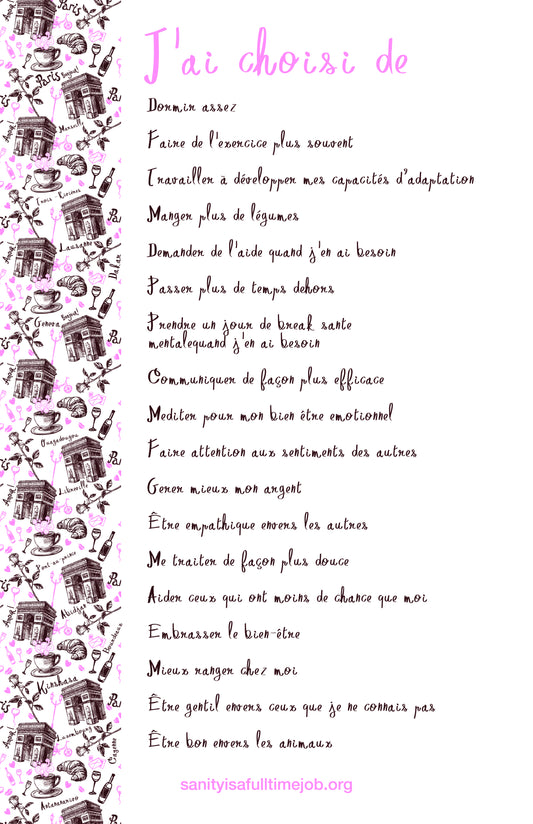 J'ai choisi de
Dormir assez
Faire de l'exercice plus souvent
Travailler à développer mes capacités d'adaptation
Manger plus de légumes
Demander de l'aide quand j'en ai besoin
Passer plus de temps dehors
Prendre un jour de break sante
mentalequand j'en ai besoin
Communiquer de façon plus efficace
Mediter pour mon bien être emotionnel
Faire attention aux sentiments des autres
Gerer mieux mon argent
Être empathique envers les autres
Me traiter de façon plus douce
Aider ceux qui ont moins de chance que moi
Embrasser le bien-être
Mieux ranger chez moi
Être gentil envers ceux que je ne connais pas
Être bon envers les animaux
sanityisafulltimejob.org
Paris
Bonjour!
Paris
Marseille
Lausanne
Dakar
Geneva
Bonjour!
Ouagadougou
Libreville
Port-au-prince
Abidjan
Bordeaux
Kinshasa
Luxembourg
Cayenne
Antananarivo